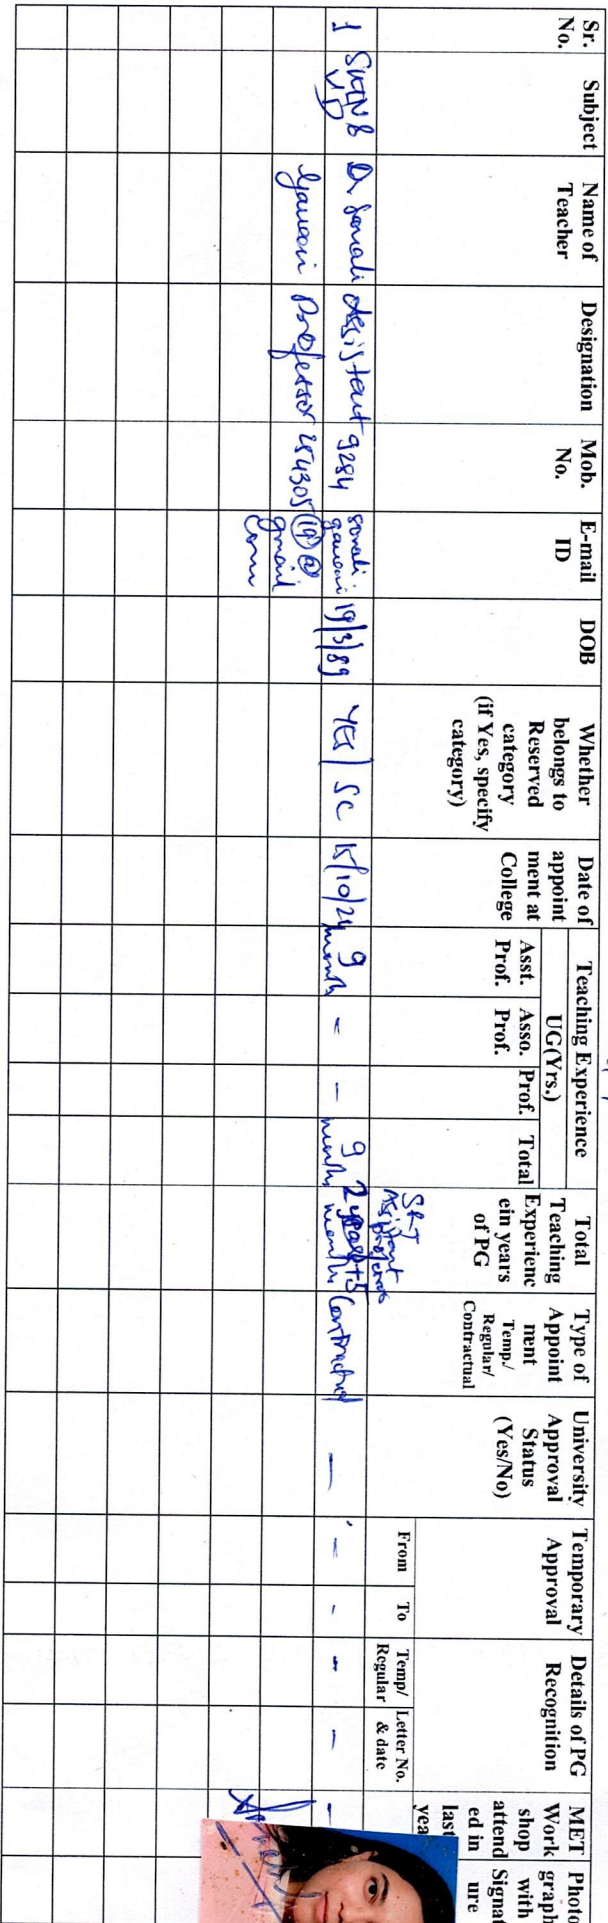 Sr. No.
Subject
Name of Teacher
Designation
Mob. No.
E-mail ID
DOB
Whether belongs to Reserved category (if Yes, specify category)
Date of appoint ment at College
Teaching Experience
UG(Yrs.)
Asst. Prof.
Asso. Prof.
Prof.
Total
Total Teaching Experienc ein years of PG
Type of Appoint ment Temp./ Regular/ Contractual
University Approval Status (Yes/No)
Temporary Approval
From
To
Details of PG Recognition
Temp/ Regular
Letter No. & date
MET Work shop attend ed in last yea
Photo graph with Signat ure
1
Dr Sonali Gawai
Assistant Professor
9284
sonali
gmail com
19/3/89
YES / SC
15/10/24
9 month
-
-
9 months
SRT Assistant professor
2 years + 5 months
Contractual
-
-
-
-
-
-